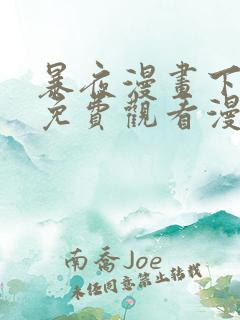 暴夜漫畫下
免費觀看漫
南喬Joe
未经同意禁止转载